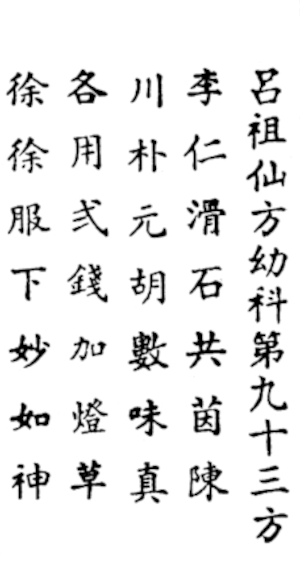 呂祖仙方幼科第九十三方
李仁滑石共茵陳
川朴元胡數味真
各用弍錢加燈草
徐徐服下妙如神